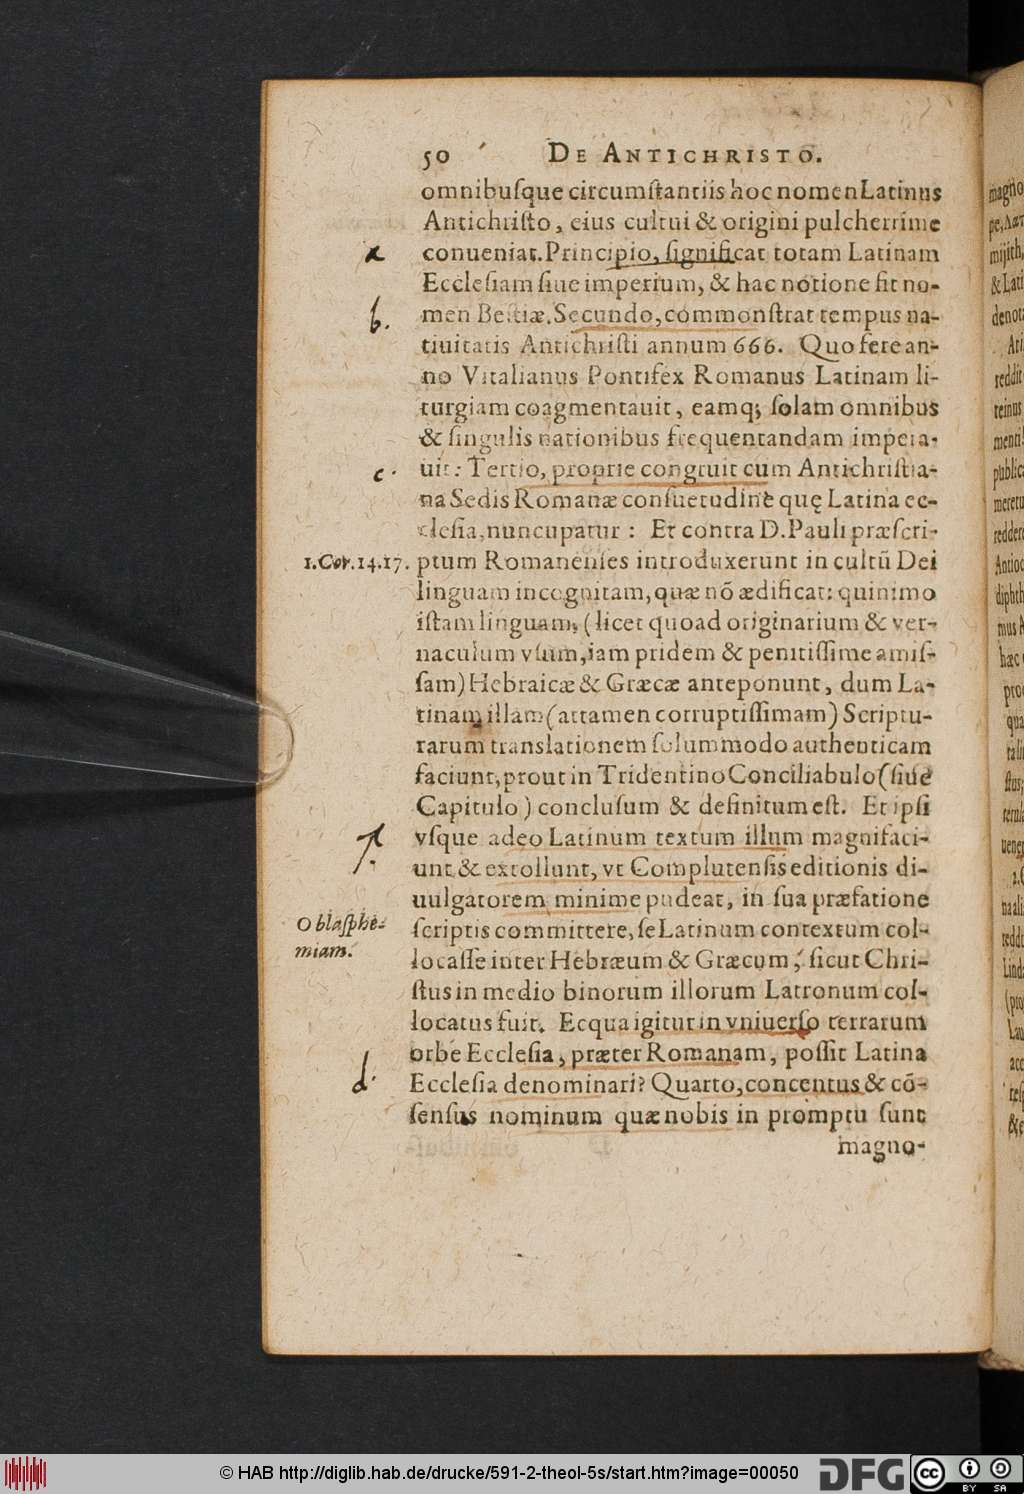 50 DE ANTICHRISTO.
omnibuſque circumſtantiis hoc nomen Latinus
Antichriſto, eius cultui & origini pulcherrime
a conueniat. Principio, ſignificat totam Latinam
Eccleſiam ſiue imperium, & hac notione fit no-
b. men Beſtiæ. Secundo, commonſtrat tempus na-
tiuitatis Antichriſti annum 666. Quo fere an-
no Vitalianus Pontifex Romanus Latinam li-
turgiam coagmentauit, eamq; ſolam omnibus
& ſingulis nationibus frequentandam impera-
c. uit: Tertio, proprie congruit cum Antichriſtia-
na Sedis Romanæ conſuetudine quę Latina ec-
cleſia, nuncupatur: Et contra D. Pauli præſcri-
1. Cor. 14. 17. ptum Romanenſes introduxerunt in cultū Dei
linguam incognitam, quæ nō ædificat: quinimo
iſtam linguam, (licet quoad originarium & ver-
naculum vſum, iam pridem & penitiſſime amiſ-
ſam) Hebraicæ & Græcæ anteponunt, dum La-
tinam illam (attamen corruptiſſimam) Scriptu-
rarum translationem ſolummodo authenticam
faciunt, prout in Tridentino Conciliabulo (ſiue
Capitulo) concluſum & definitum eſt. Et ipſi
vſque adeo Latinum textum illum magnifaci-
unt & extollunt, vt Complutenſis editionis di-
uulgatorem minime pudeat, in ſua præfatione
O blaſphe- ſcriptis committere, ſe Latinum contextum col-
miam. locaſſe inter Hebræum & Græcum, ſicut Chri-
ſtus in medio binorum illorum Latronum col-
locatus fuit. Ecqua igitur in vniuerſo terrarum
orbe Eccleſia, præter Romanam, poſſit Latina
d. Eccleſia denominari? Quarto, concentus & cō-
ſenſus nominum quæ nobis in promptu ſunt
magno-
© HAB http://diglib.hab.de/drucke/591-2-theol-5s/start.htm?image=00050
DFG
cc BY SA